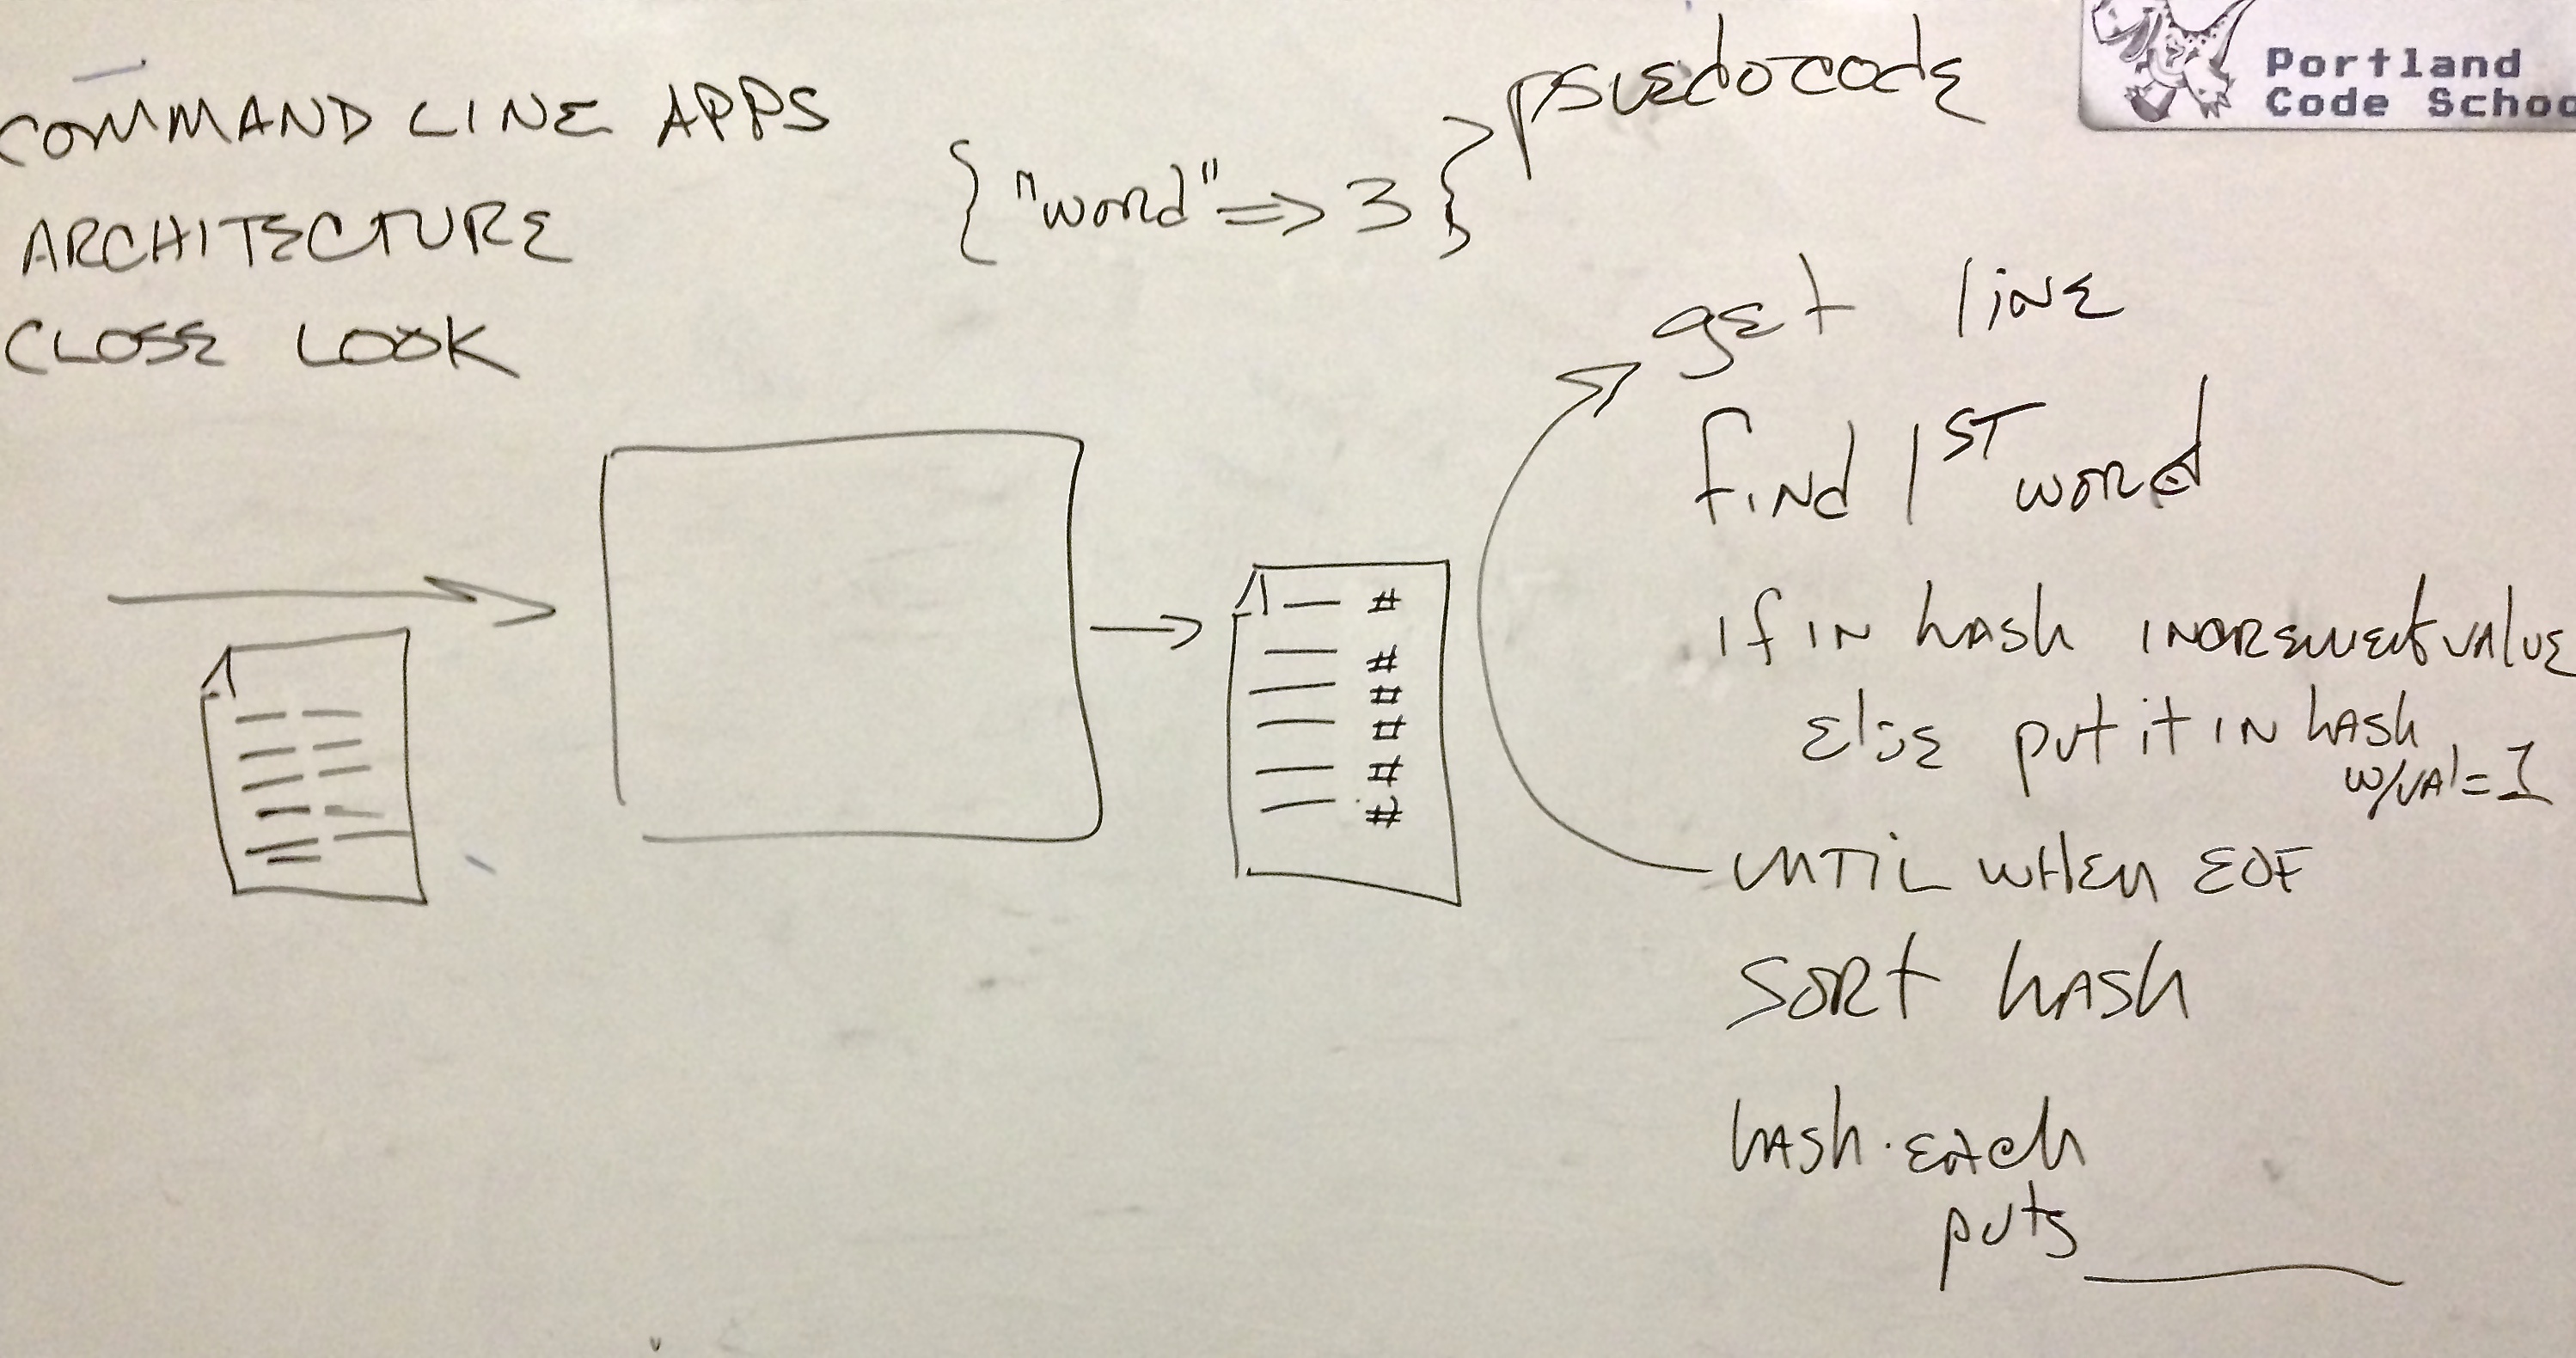 COMMAND LINE APPS
ARCHITECTURE
CLOSE LOOK
{ "word" => 3 }
> psuedocode
Portland
Code Schoo
get line
find 1ST word
if in hash increment value
else put it in hash
w/val = 1
UNTIL WHEN EOF
SORT hash
hash.each
puts ______
# 
#
#
#
#
#